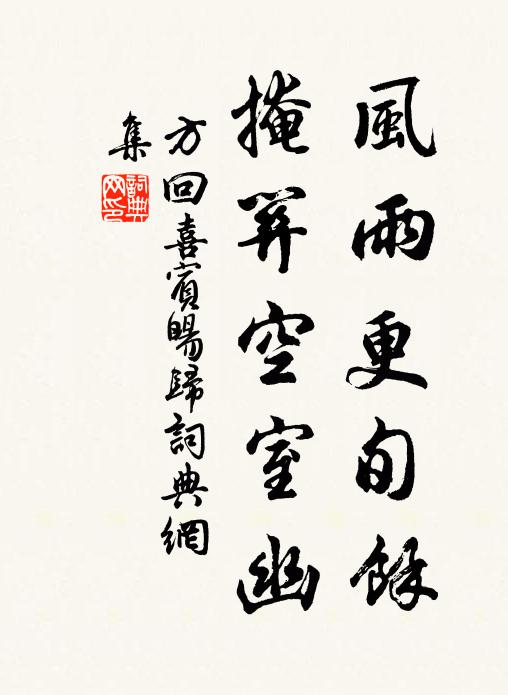 風雨更旬餘
掩筭空室幽
方回喜賓暘歸詞典網
集
詞典网印